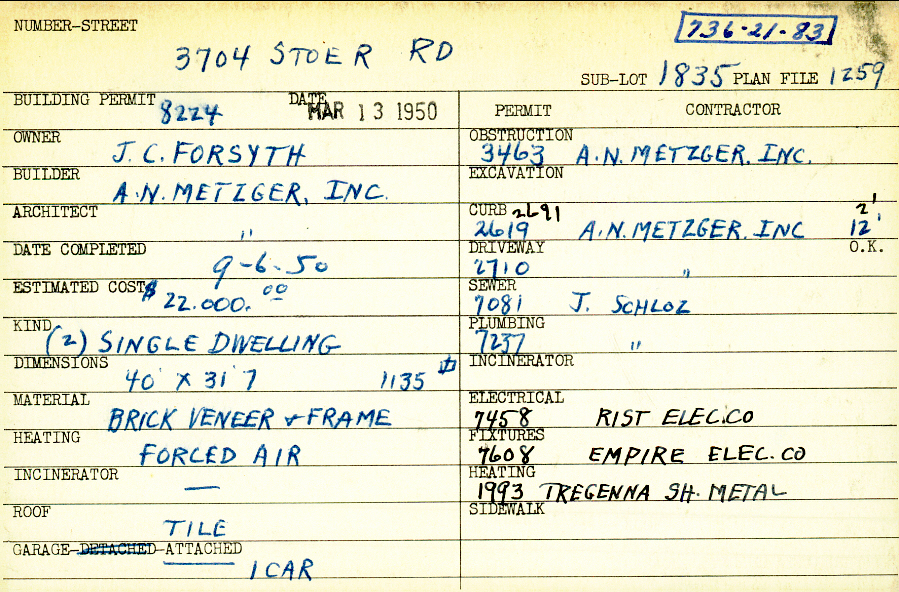 NUMBER-STREET
736-21-83
3704 STOER RD
SUB-LOT 1835 PLAN FILE 1259
BUILDING PERMIT 8224 DATE MAR 13 1950
PERMIT CONTRACTOR
OWNER
J.C. FORSYTH
OBSTRUCTION
3463 A.N. METZGER, INC.
BUILDER
A.N. METZGER, INC.
EXCAVATION
ARCHITECT
"
CURB 2691 2'
2619 A.N. METZGER, INC 12'
DATE COMPLETED
9-6-50
DRIVEWAY O.K.
2710 "
ESTIMATED COST $ 22.000.00
SEWER
7081 J. SCHLOZ
KIND
(2) SINGLE DWELLING
PLUMBING
7237 "
DIMENSIONS
40' X 31' 7 1135
INCINERATOR
MATERIAL
BRICK VENEER & FRAME
ELECTRICAL
7458 RIST ELEC.CO
HEATING
FORCED AIR
FIXTURES
7608 EMPIRE ELEC. CO
INCINERATOR
—
HEATING
1993 TREGENNA SH. METAL
ROOF
TILE
SIDEWALK
GARAGE-DETACHED-ATTACHED
1 CAR